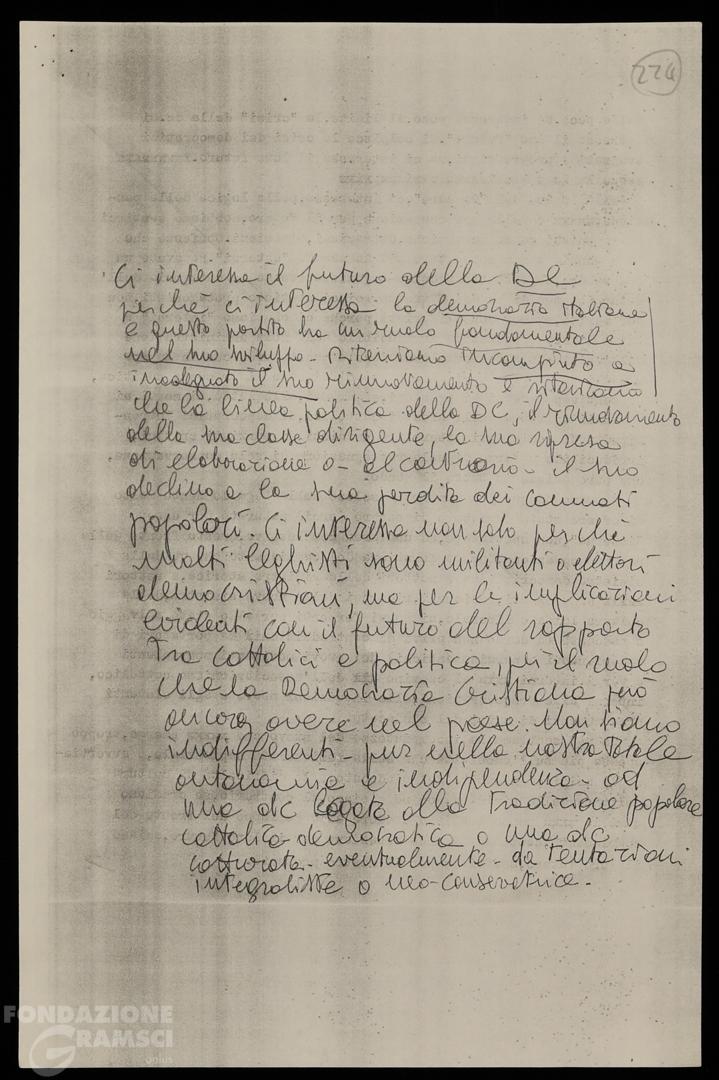 224
Ci interessa il futuro della DC
perché ci interessa la democrazia italiana
e questo partito ha un ruolo fondamentale
nel suo sviluppo - Riteniamo incompiuto o
inadeguato il suo rinnovamento e riteniamo
che la linea politica della DC, il rinnovamento
della sua classe dirigente, la sua ripresa
di elaborazione o - al contrario - il suo
declino o la sua perdita dei connotati
popolari. Ci interessa non solo perché
molti leghisti sono militanti o elettori
democristiani, ma per le implicazioni
evidenti con il futuro del rapporto
tra cattolici e politica, per il ruolo
che la Democrazia Cristiana può
ancora avere nel paese. Non siamo
indifferenti - pur nella nostra totale
autonomia e indipendenza - ad
una dc legata alla tradizione popolare
cattolico-democratica o una dc
catturata - eventualmente - da tentazioni
integraliste o neo-conservatrice.
FONDAZIONE
GRAMSCI
onlus